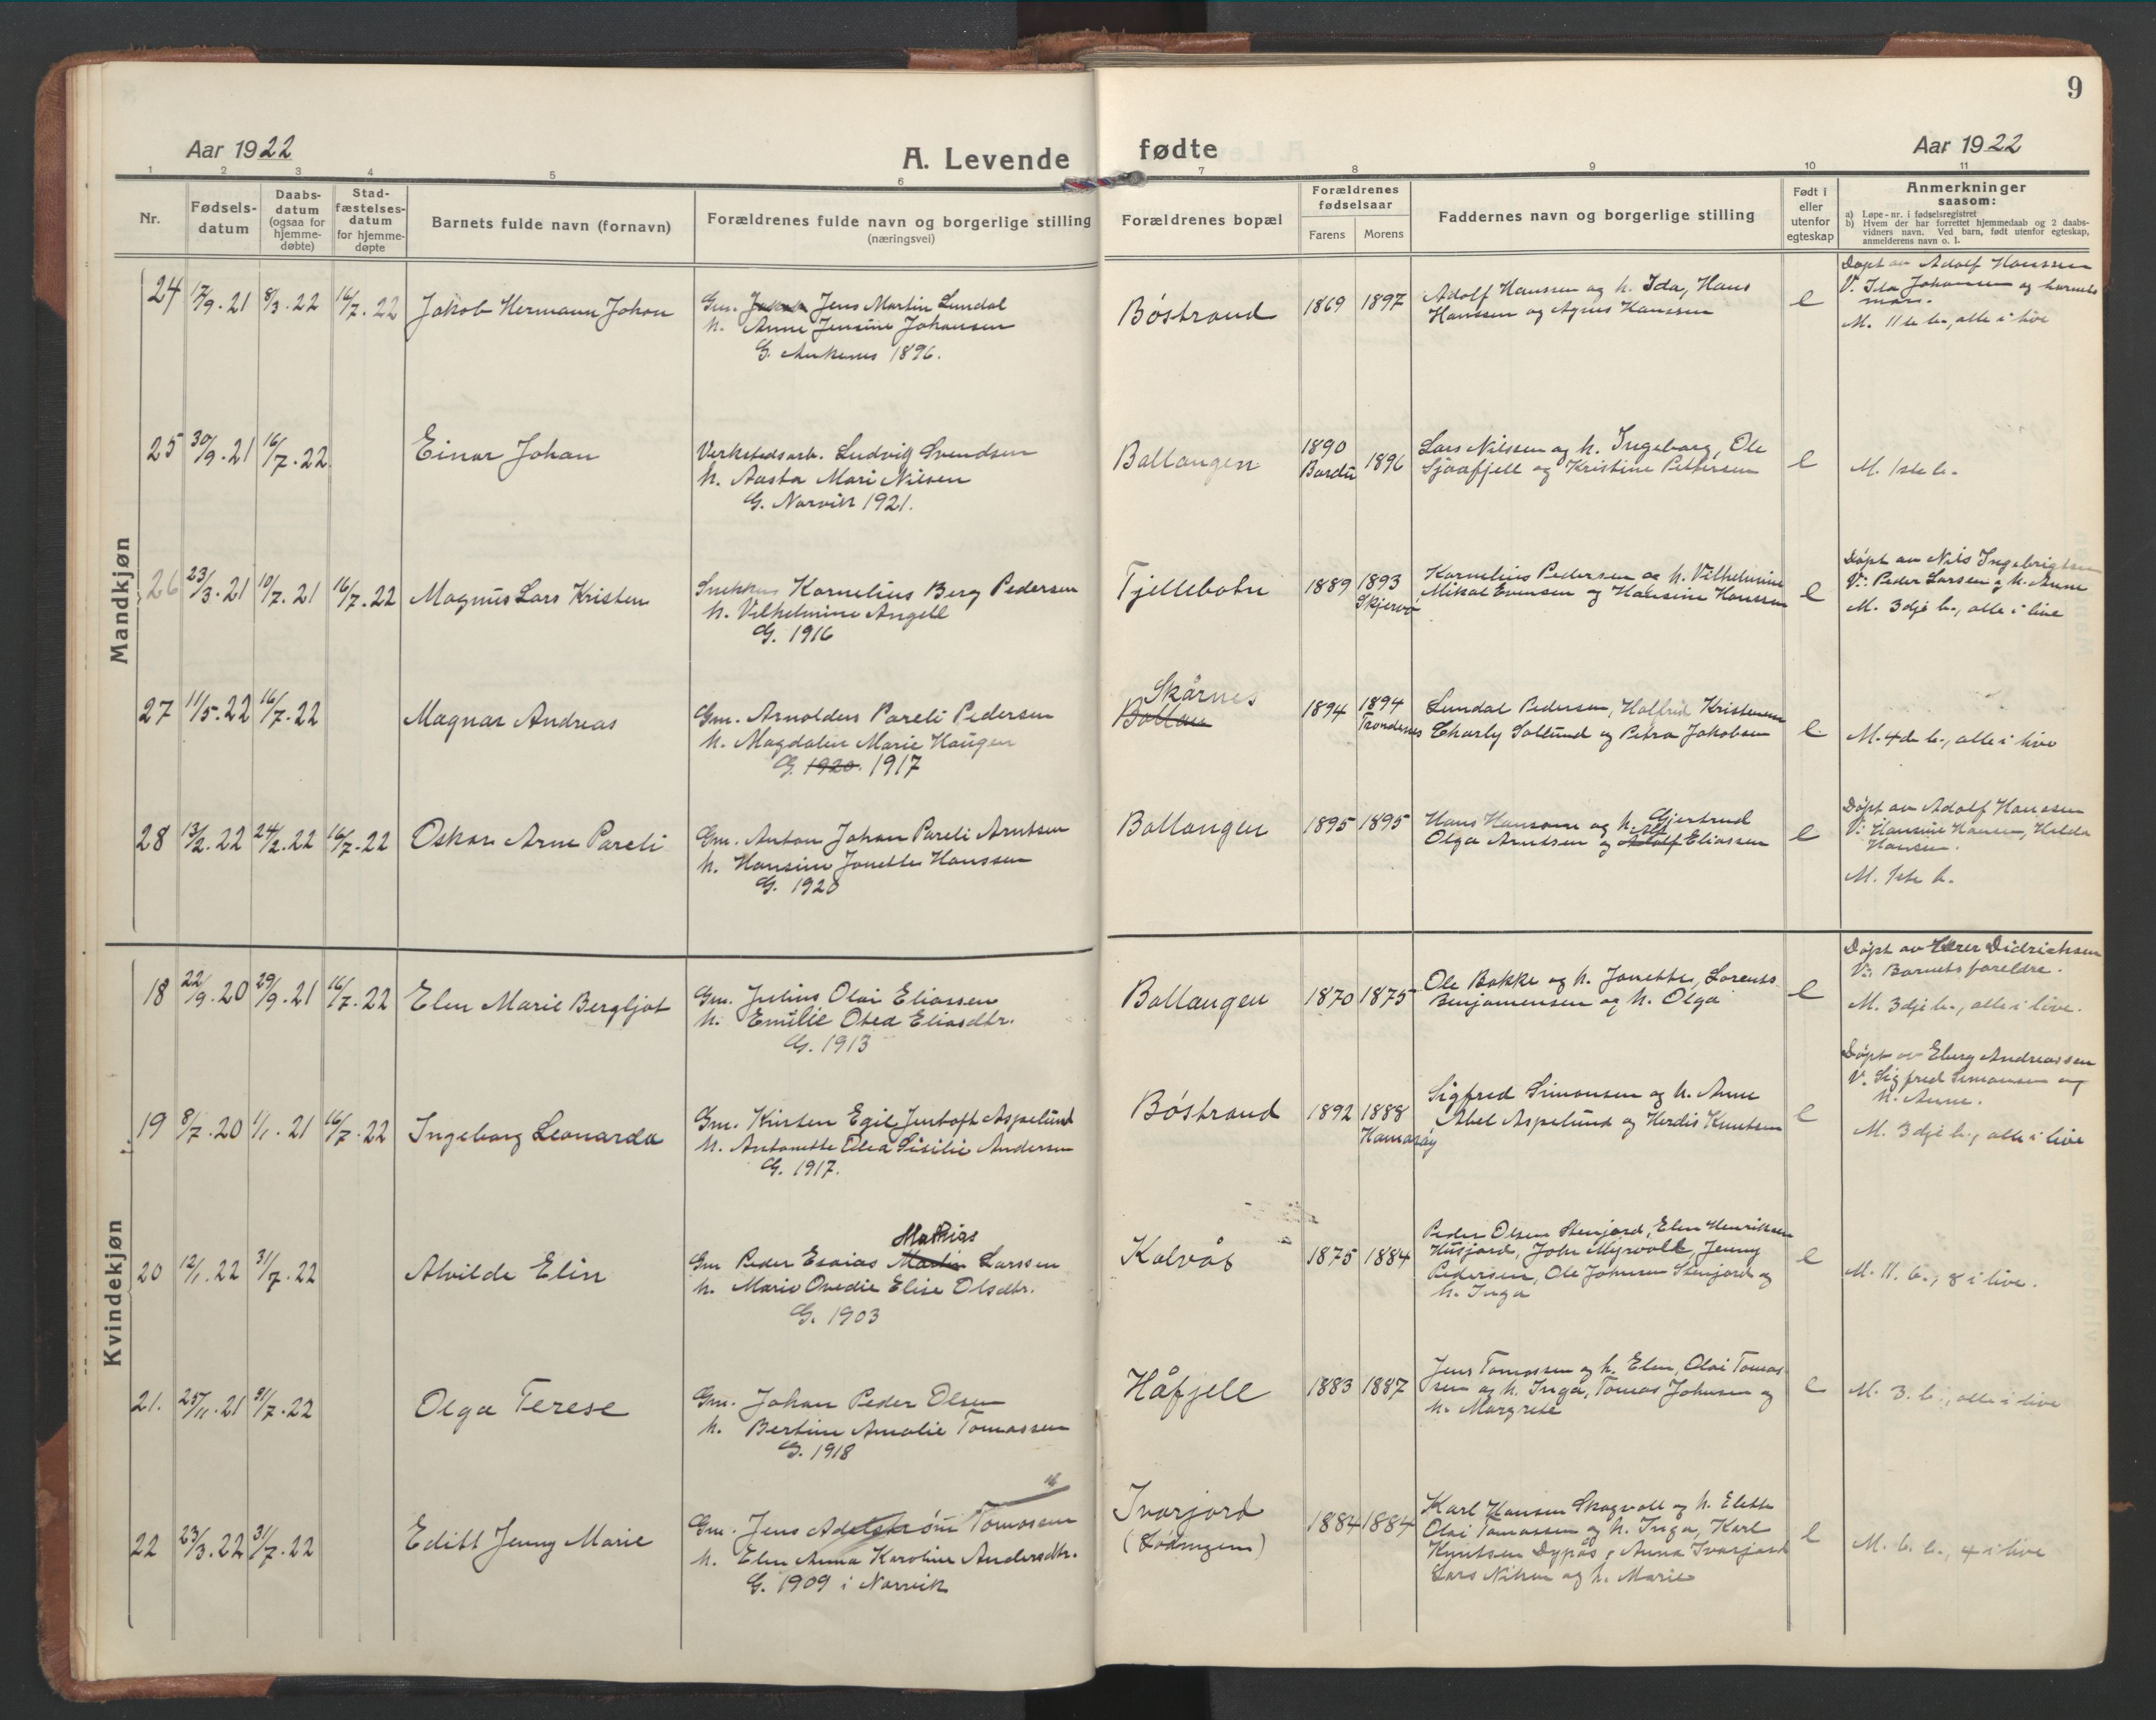 9
Aar 1922
A. Levende fødte
Aar 1922
1 2 3 4 5 6 7 8 9 10 11
Nr.
Fødsels-
datum
Daabs-
datum
(ogsaa for
hjemme-
døbte)
Stad-
fæstelses-
datum
for hjemme-
døpte
Barnets fulde navn (fornavn)
Forældrenes fulde navn og borgerlige stilling
(næringsvei)
Forældrenes bopæl
Forældrenes
fødselsaar
Farens Morens
Faddernes navn og borgerlige stilling
Født i
eller
utenfor
egteskap
Anmerkninger
saasom:
a) Løpe-nr. i fødselsregistret
b) Hvem der har forrettet hjemmedaab og 2 daabs-
vidners navn. Ved barn, født utenfor egteskap,
anmelderens navn o. l.
Mandkjøn
24 17/9.21 8/3.22 16/7.22 Jakob Hermann Johan
Gm. Jens Martin Lundal
h. Anne Jensine Johansen
G. Ankenes 1896.
Bøstrand 1869 1897
Adolf Hanssen og h. Ida, Hans
Hanssen og Agnes Hanssen
e
Døpt av Adolf Hanssen
V. Ida Johansen og barnets
mor.
M. 11te b., alle i live
25 30/9.21 16/7.22 Einar Johan
Verkstedsarb. Ludvig Svendsen
h. Aasta Mari Nilsen
G. Narvik 1921.
Ballangen 1890 1896
Bardu
Lars Nilssen og h. Ingeborg, Ole
Sjaafjell og Kristine Pettersen
e
M. 1ste b.
26 23/3.21 10/7.21 16/7.22 Magnus Lars Kristen
Snekker Kornelius Berg Pedersen
h. Vilhelmine Angell
G. 1916
Tjellebotn 1889 1893
Skjervø
Kornelius Pedersen og h. Vilhelmine
Mikal Evensen og Hansine Hanssen
e
Døpt av Nils Ingebrigtsen
V: Peder Larsen og h. Anne
M. 3dje b., alle i live
27 11/5.22 16/7.22 Magnar Andreas
Gm. Arnoldus Pareli Pedersen
h. Magdalin Marie Haugen
G. 1920. 1917
Skårnes
1894 1894
Trondenes
Lundal Pedersen, Halfrid Kristensen
Charly Sollund og Petra Jakobsen
e
M. 4de b., alle i live
28 13/2.22 24/2.22 16/7.22 Oskar Arne Pareli
Gm. Anton Johan Pareli Arntsen
h. Hansine Jonette Hanssen
G. 1920
Ballangen 1895 1895
Hans Hansen og h. Gjertrud
Olga Arntsen og Adolf Eliassen
e
Døpt av Adolf Hanssen
V: Hansine Hansen, Hilda
Hansen.
M. 1ste b.
Kvindekjøn
18 22/9.20 29/9.21 16/7.22 Elen Marie Bergljot
Gm. Julius Olai Eliassen
h. Emilie Otea Eliasdtr.
G. 1913
Ballangen 1870 1875
Ole Bakke og h. Jonette, Lorents
Benjamensen og h. Olga
e
Døpt av Didrichsen
V: Barnets foreldre.
M. 3dje b., alle i live.
19 8/7.20 1/1.21 16/7.22 Ingeborg Leonarda
Gm. Kirsten Egil Jentoft Aspelund
h. Antonette Elea Sisilie Andersen
G. 1917.
Bøstrand 1892 1888
Hamarøy
Sigfred Simonsen og h. Anne
Abel Aspelund og Herdis Knutsen
e
Døpt av Eberg Andreassen
V. Sigfred Simonsen og
h. Anne.
M. 3dje b., alle i live
20 12/1.22 31/7.22 Alvilde Elin
Mathias
Gm Peder Esaias Martin Larssen
h. Marie Ovedie Elise Olsdtr.
G. 1903
Kalvås 1875 1884
Peder Olsen Stenjord, Elen Henriksen
Husjord, John Myrvoll, Jenny
Pedersen, Ole Johnsen Stenjord og
h. Inga
e
M. 11. b., 8 i live.
21. 25/11.21 31/7.22 Olga Terese
Gm. Johan Peder Olsen
h. Bertine Amalie Tomassen
G. 1918
Håfjell 1883 1887
Jens Tomassen og h. Elen, Olai Tomas-
sen og h. Inga, Tomas Johnsen og
h. Margrete
e
M. 3. b., alle i live
22 23/3.22 31/7.22 Editt Jenny Marie
Gm. Jens Adelstrøm Tomassen
h. Elen Anna Karoline Andersdtr.
G. 1909 i Narvik
Ivarjord
(Lødingen)
1884 1884
Karl Hansen Skogvoll og h. Elette
Olai Tomassen og h. Inga, Karl
Knutsen Dypås, Anna Ivarjord
Lars Nilsen og h. Marie
e
M. 6. b., 4 i live